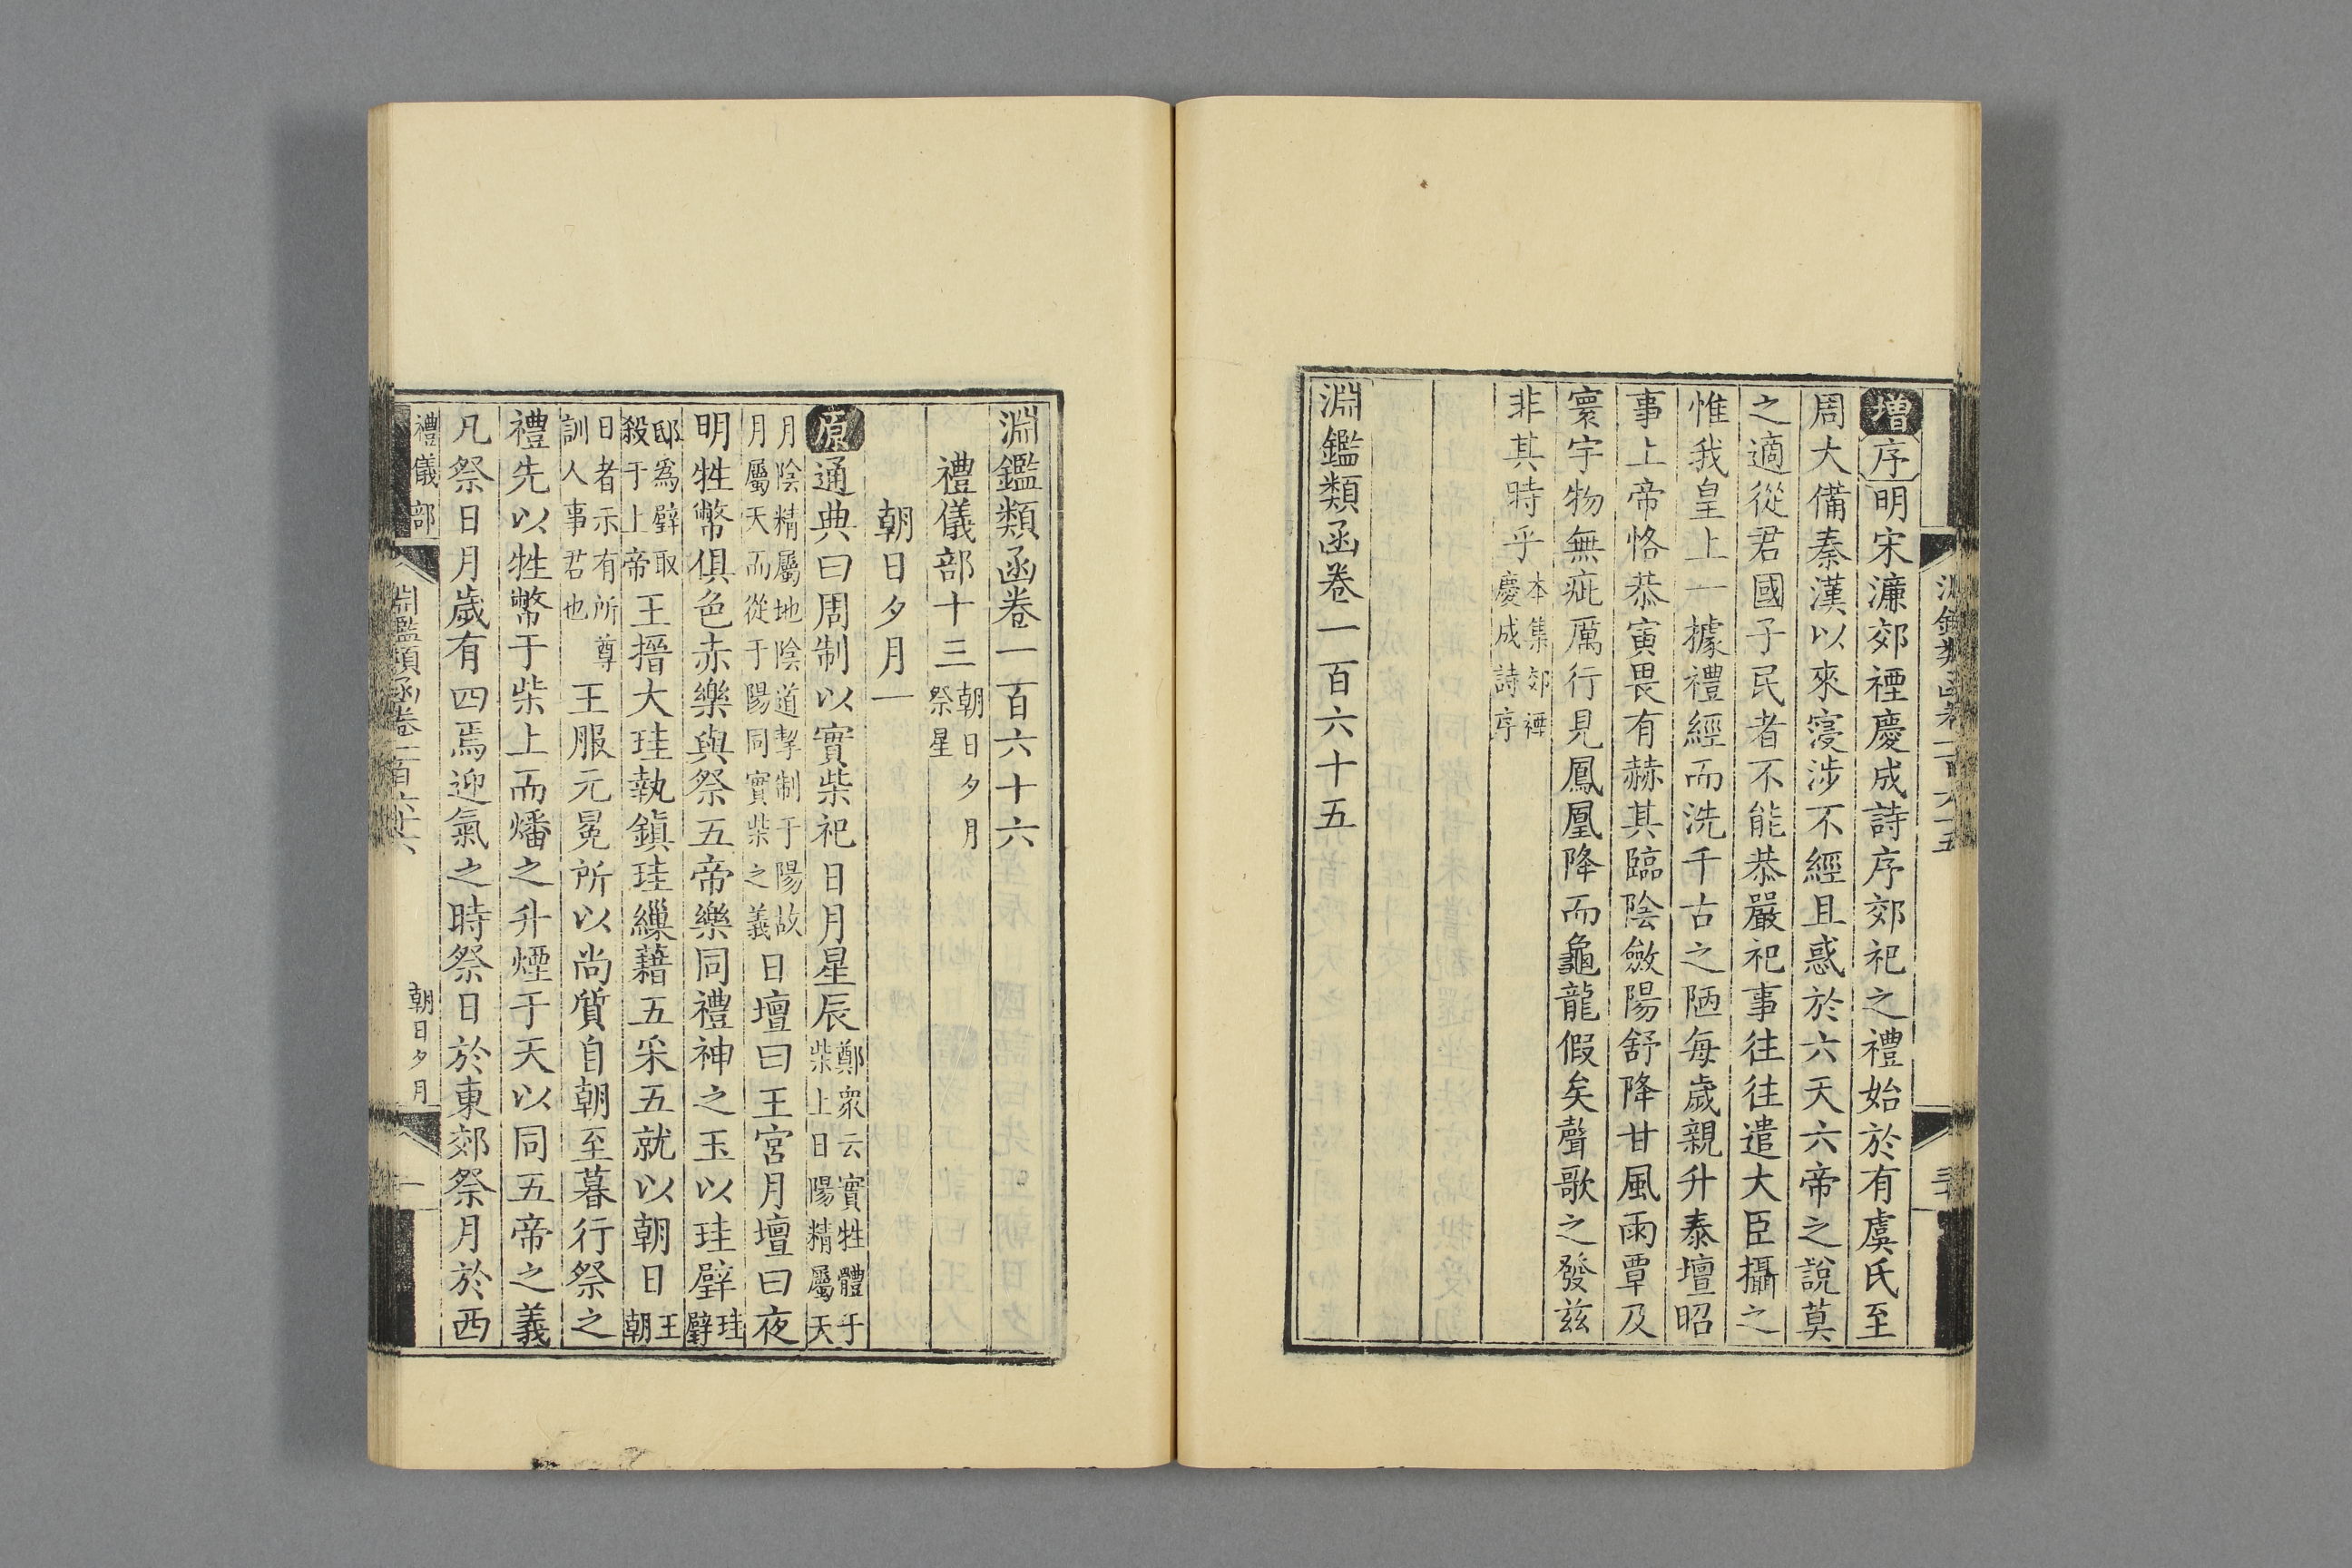 增序明宋濂郊禋慶成詩序郊祀之禮始於有虞氏至
周大備秦漢以來寖涉不經且惑於六天六帝之說莫
之適從君國子民者不能恭嚴祀事往往遣大臣攝之
惟我皇上一據禮經而洗千古之陋每歲親升泰壇昭
事上帝恪恭寅畏有赫其臨陰斂陽舒降甘風雨覃及
寰宇物無疵厲行見鳳凰降而龜龍假矣聲歌之發兹
非其時乎本集郊禋慶成詩序
淵鑑類函卷一百六十五
淵鑑類函卷一百六十六
禮儀部十三朝日夕月祭星
朝日夕月一
原通典曰周制以實柴祀日月星辰鄭衆云實牲體于柴上日陽精屬天
月陰精屬地陰道掣制于陽故月屬天而從于陽同實柴之義日壇曰王宮月壇曰夜
明牲幣俱色赤樂與祭五帝樂同禮神之玉以珪璧珪璧
邸爲璧取殺于上帝王搢大珪執鎮珪繅藉五采五就以朝日王朝
日者示有所尊訓人事君也王服元冕所以尚質自朝至暮行祭之
禮先以牲幣于柴上而燔之升煙于天以同五帝之義
凡祭日月歲有四焉迎氣之時祭日於東郊祭月於西
禮儀部
淵鑑類函卷一百六十六
朝日夕月
一